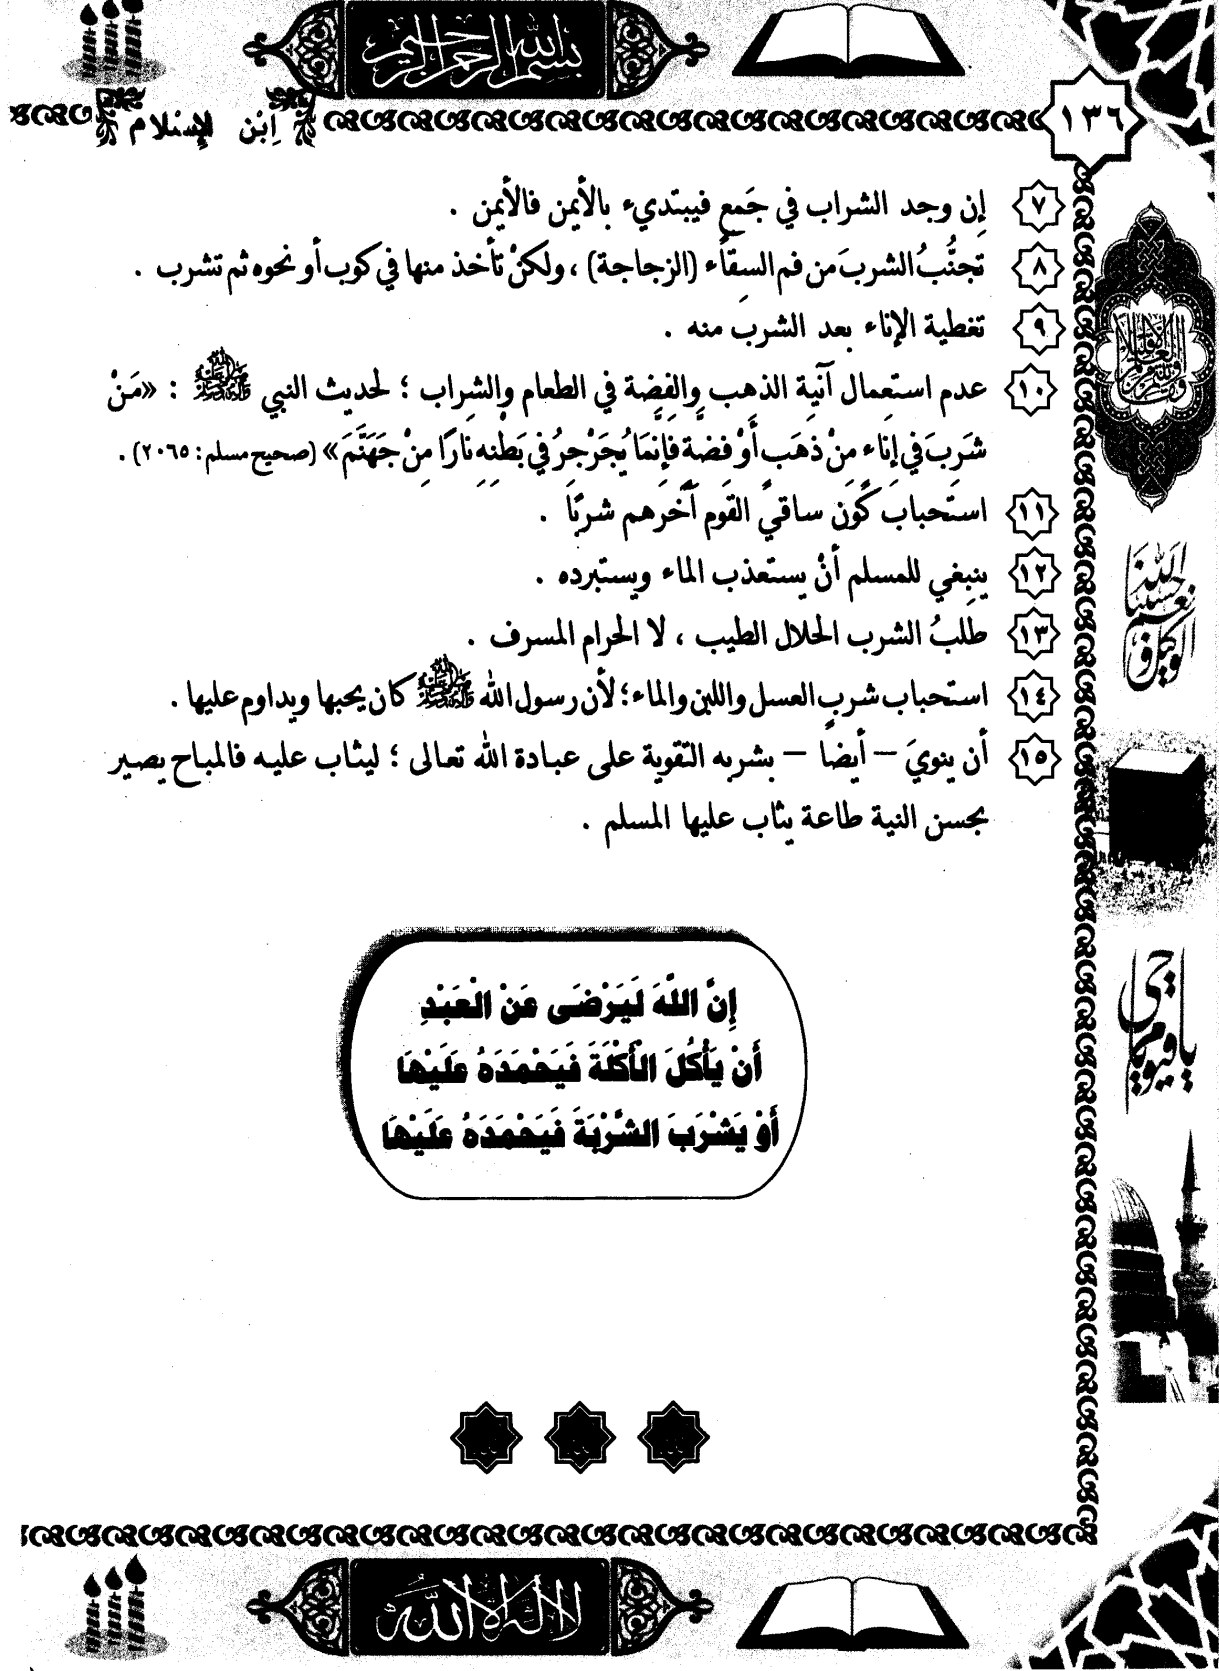 بسم الله الرحمن الرحيم
ابن الإسلام
١٣٦
٧ إن وجد الشراب في جَمع فيبتديء بالأيمن فالأيمن .
٨ تجنُّبُ الشربَ من فم السِقاَء (الزجاجة) ، ولكنْ تأخذ منها في كوب أو نحوه ثم تشرب .
٩ تغطية الإناء بعد الشرب منه .
١٠ عدم استعمال آنية الذهب والفضة في الطعام والشراب ؛ لحديث النبي ﷺ : «مَنْ
شَرِبَ في إنَاء مِنْ ذَهَب أَوْ فِضة فإنمَا يُجَرْجرُ في بَطْنِهِ نَارًا مِنْ جَهَنَّمَ» (صحيح مسلم : ٢٠٦٥) .
١١ استحباب كَون ساقي القوم آخرهم شربًا .
١٢ ينبغي للمسلم أنْ يستعذب الماء ويستبرده .
١٣ طلبُ الشرب الحلال الطيب ، لا الحرام المسرف .
١٤ استحباب شرب العسل واللبن والماء ؛ لأن رسول الله ﷺ كان يحبها ويداوم عليها .
١٥ أن ينويَ – أيضاً – بشربه التقوية على عبادة الله تعالى ؛ ليثاب عليه فالمباح يصير
بحسن النية طاعة يثاب عليها المسلم .
إِنَّ اللَّهَ لَيَرْضَى عَنْ الْعَبْدِ
أَنْ يَأْكُلَ الْأَكْلَةَ فَيَحْمَدَهُ عَلَيْهَا
أَوْ يَشْرَبَ الشَّرْبَةَ فَيَحْمَدَهُ عَلَيْهَا
حسبنا الله ونعم الوكيل
يا حي يا قيوم
لا إله إلا الله